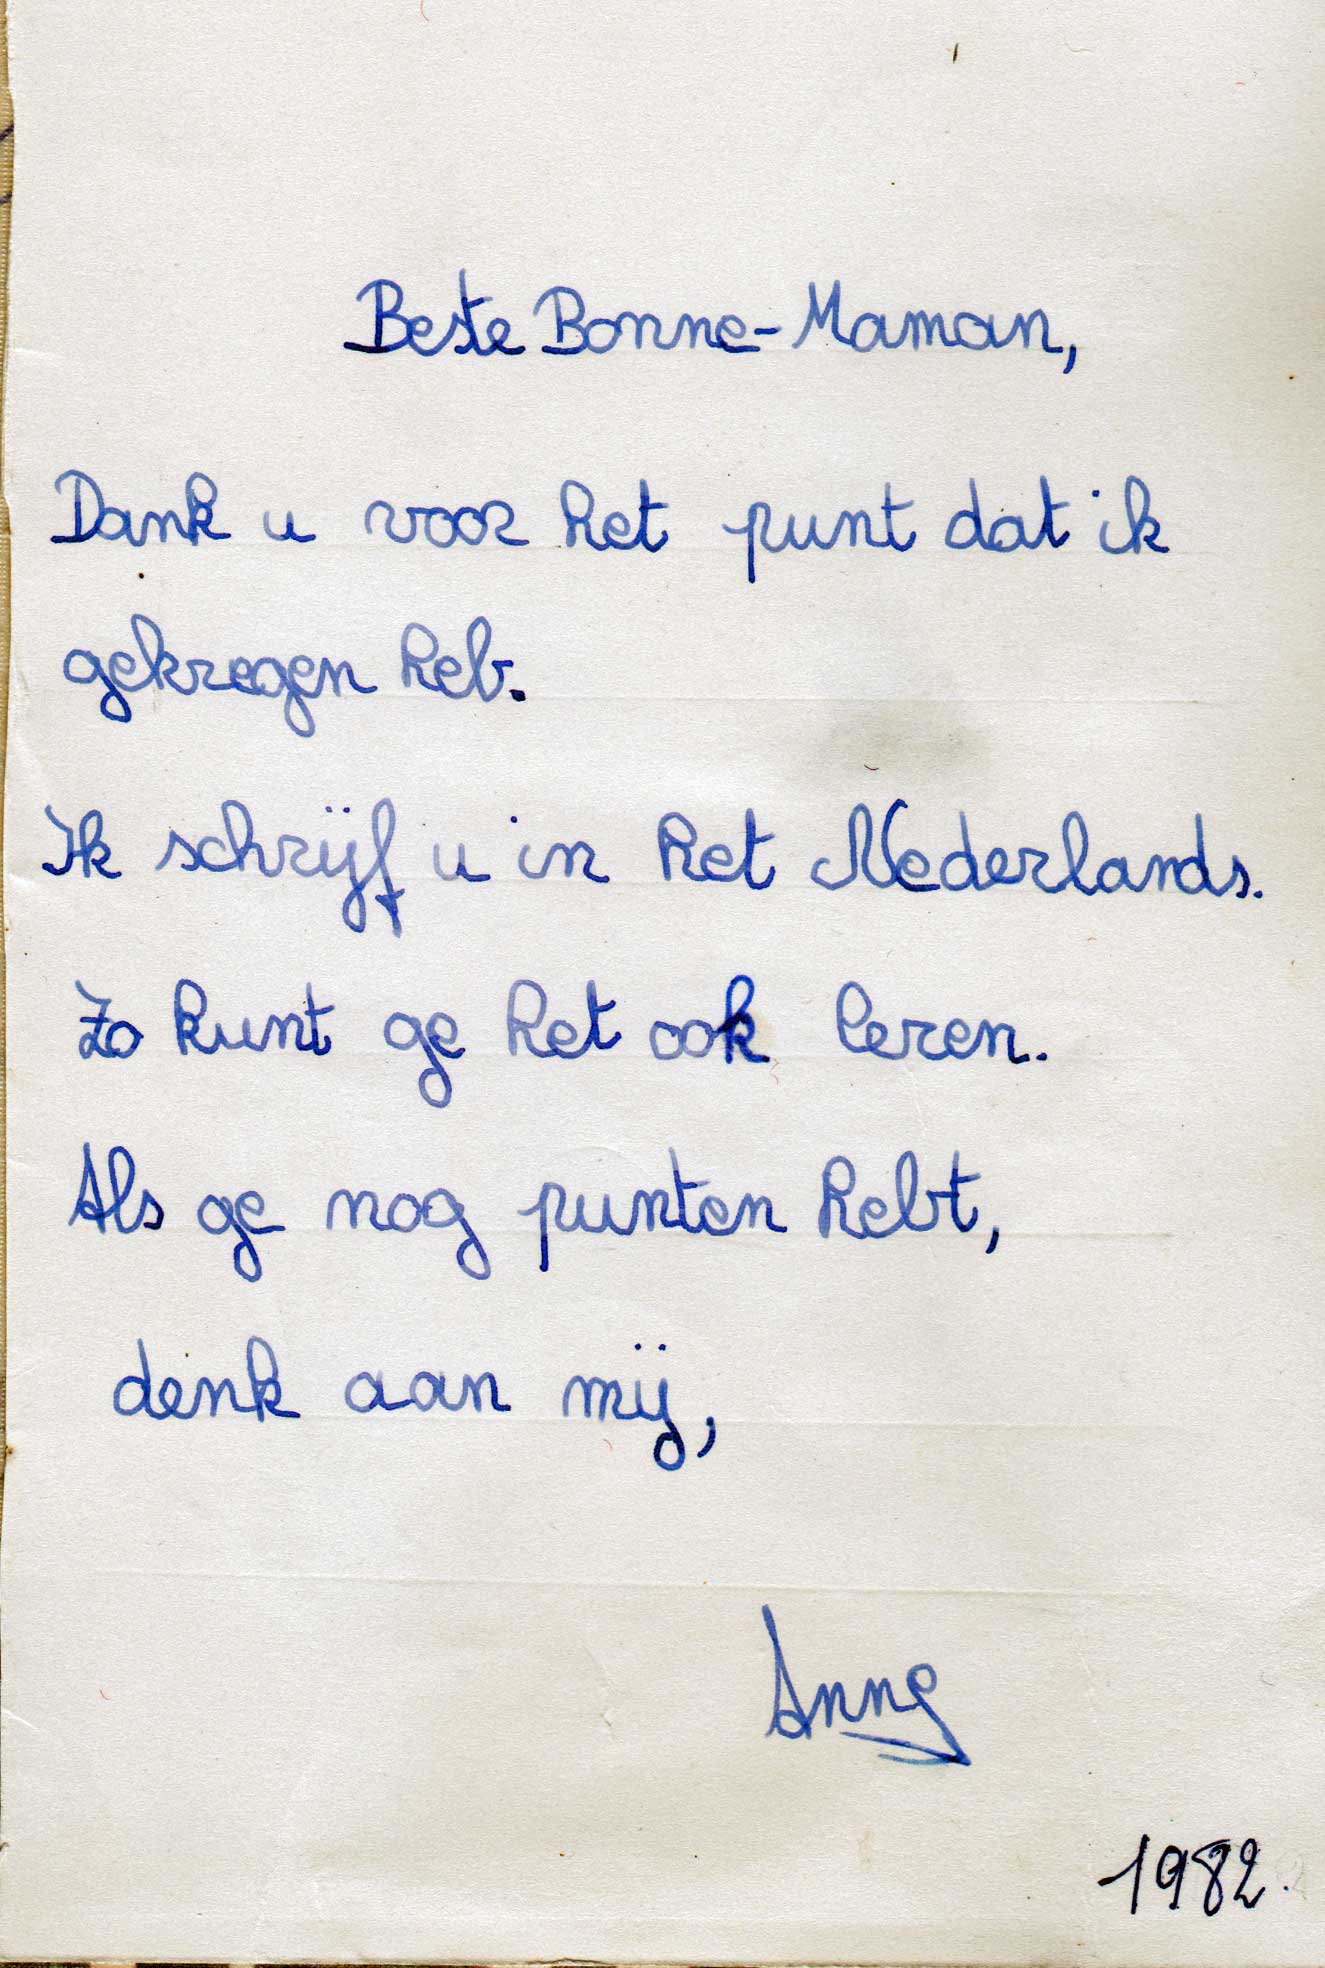 Beste Bonne-Maman,
Dank u voor het punt dat ik
gekregen heb.
Ik schrijf u in het Nederlands.
Zo kunt ge het ook leren.
Als ge nog punten hebt,
denk aan mij,
Anne
1982.